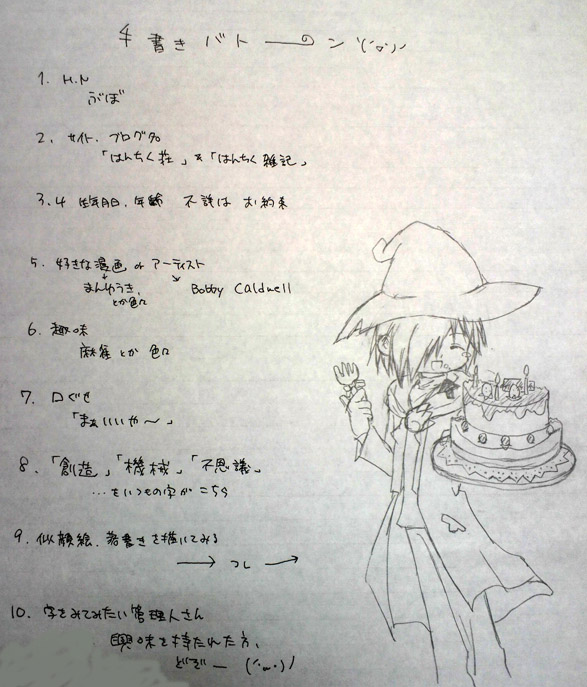 手書きバトーーン ヽ(´ο`)ノ
1. H.N
ぶぼ
2. サイト、ブログ名
「はんちく荘」&「はんちく雑記」
3.4 生年月日、年齢 不詳は お約束
5. 好きな漫画 or アーティスト
まんゆうき、 Bobby Caldwell
とか色々
6. 趣味
麻雀とか 色々
7. 口ぐせ
「まぁいいや～」
8. 「創造」「機械」「不思議」
…をいつもの字がこちら
9. 似顔絵、落書きを描いてみる
→ コレ →
10. 字をみてみたい管理人さん
興味を持たれた方、
どぞー (´・ω・)ノ